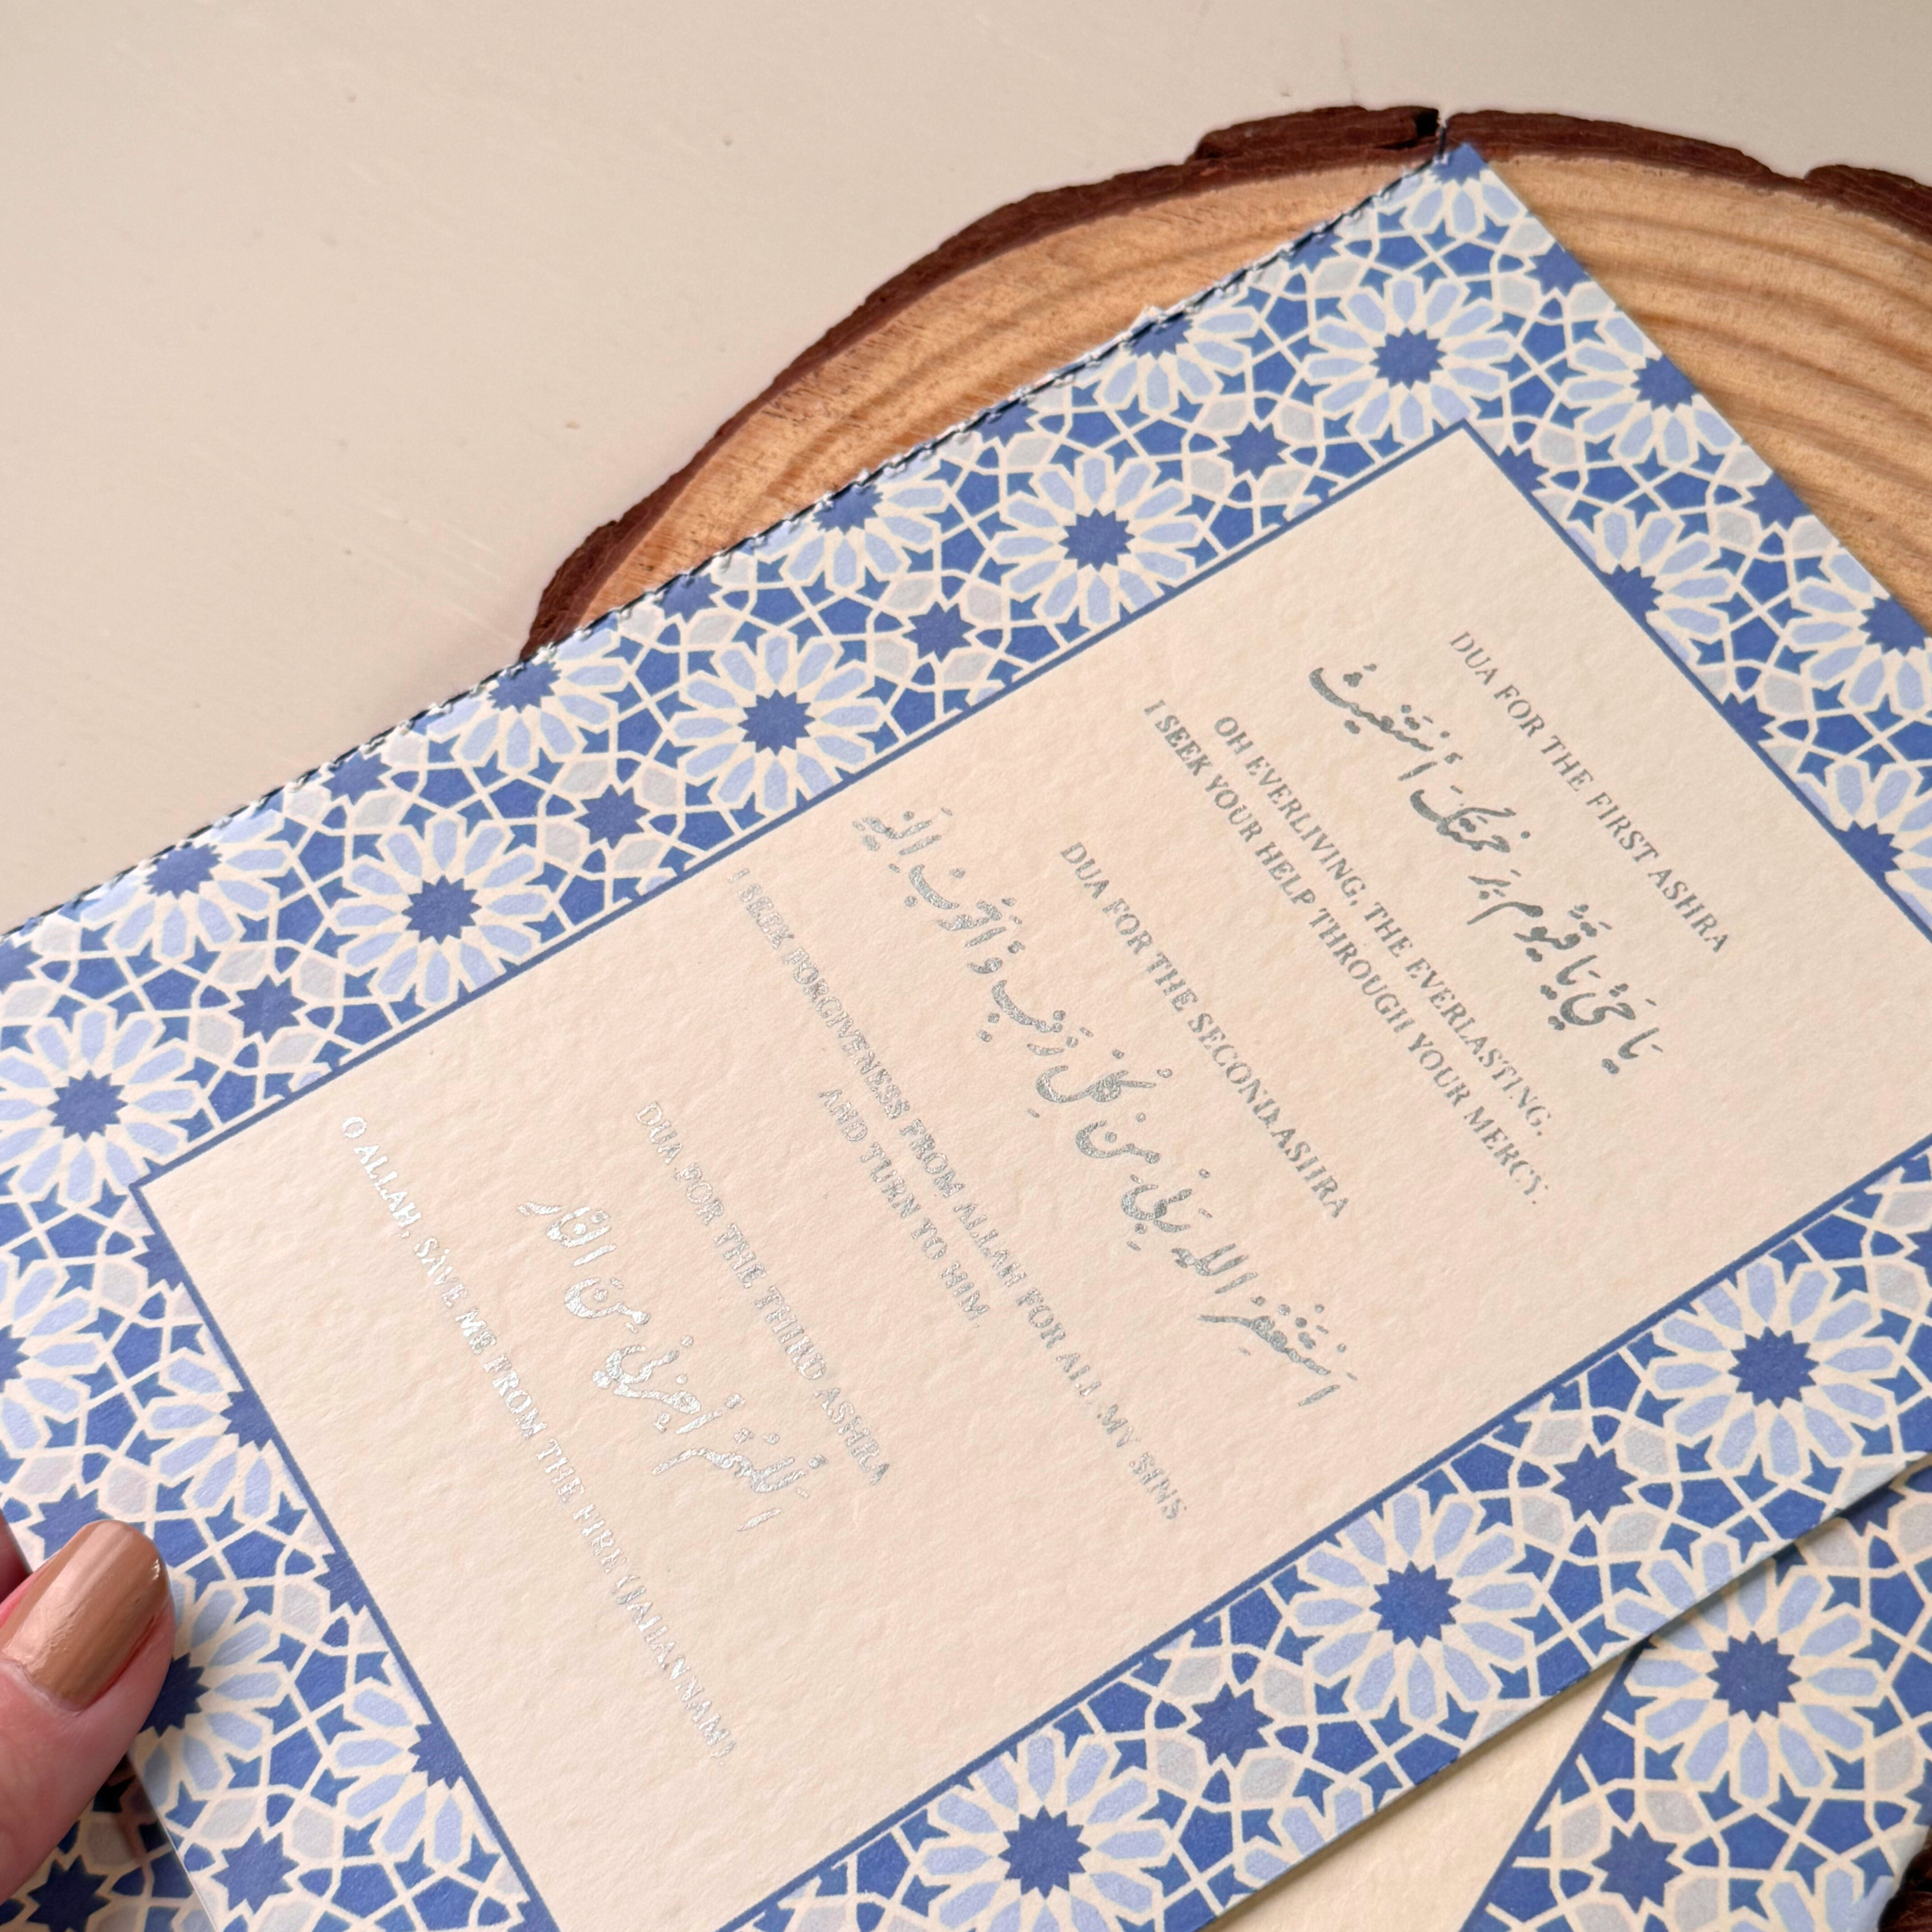 DUA FOR THE FIRST ASHRA
يَا حَيُّ يَا قَيُّوم بِرَحْمَتِكَ أَسْتَغِيثُ
OH EVERLIVING, THE EVERLASTING.
I SEEK YOUR HELP THROUGH YOUR MERCY.
DUA FOR THE SECOND ASHRA
اَسْتَغْفِرُ اللهَ رَبِّي مِنْ كُلِّ ذَنْبٍ وَّأَتُوبُ اِلَيْهِ
I SEEK FORGIVENESS FROM ALLAH FOR ALL MY SINS
AND TURN TO HIM.
DUA FOR THE THIRD ASHRA
اَللَّهُمَّ اَجِرْنِي مِنَ النَّارِ
O ALLAH, SAVE ME FROM THE FIRE (JAHANNAM)